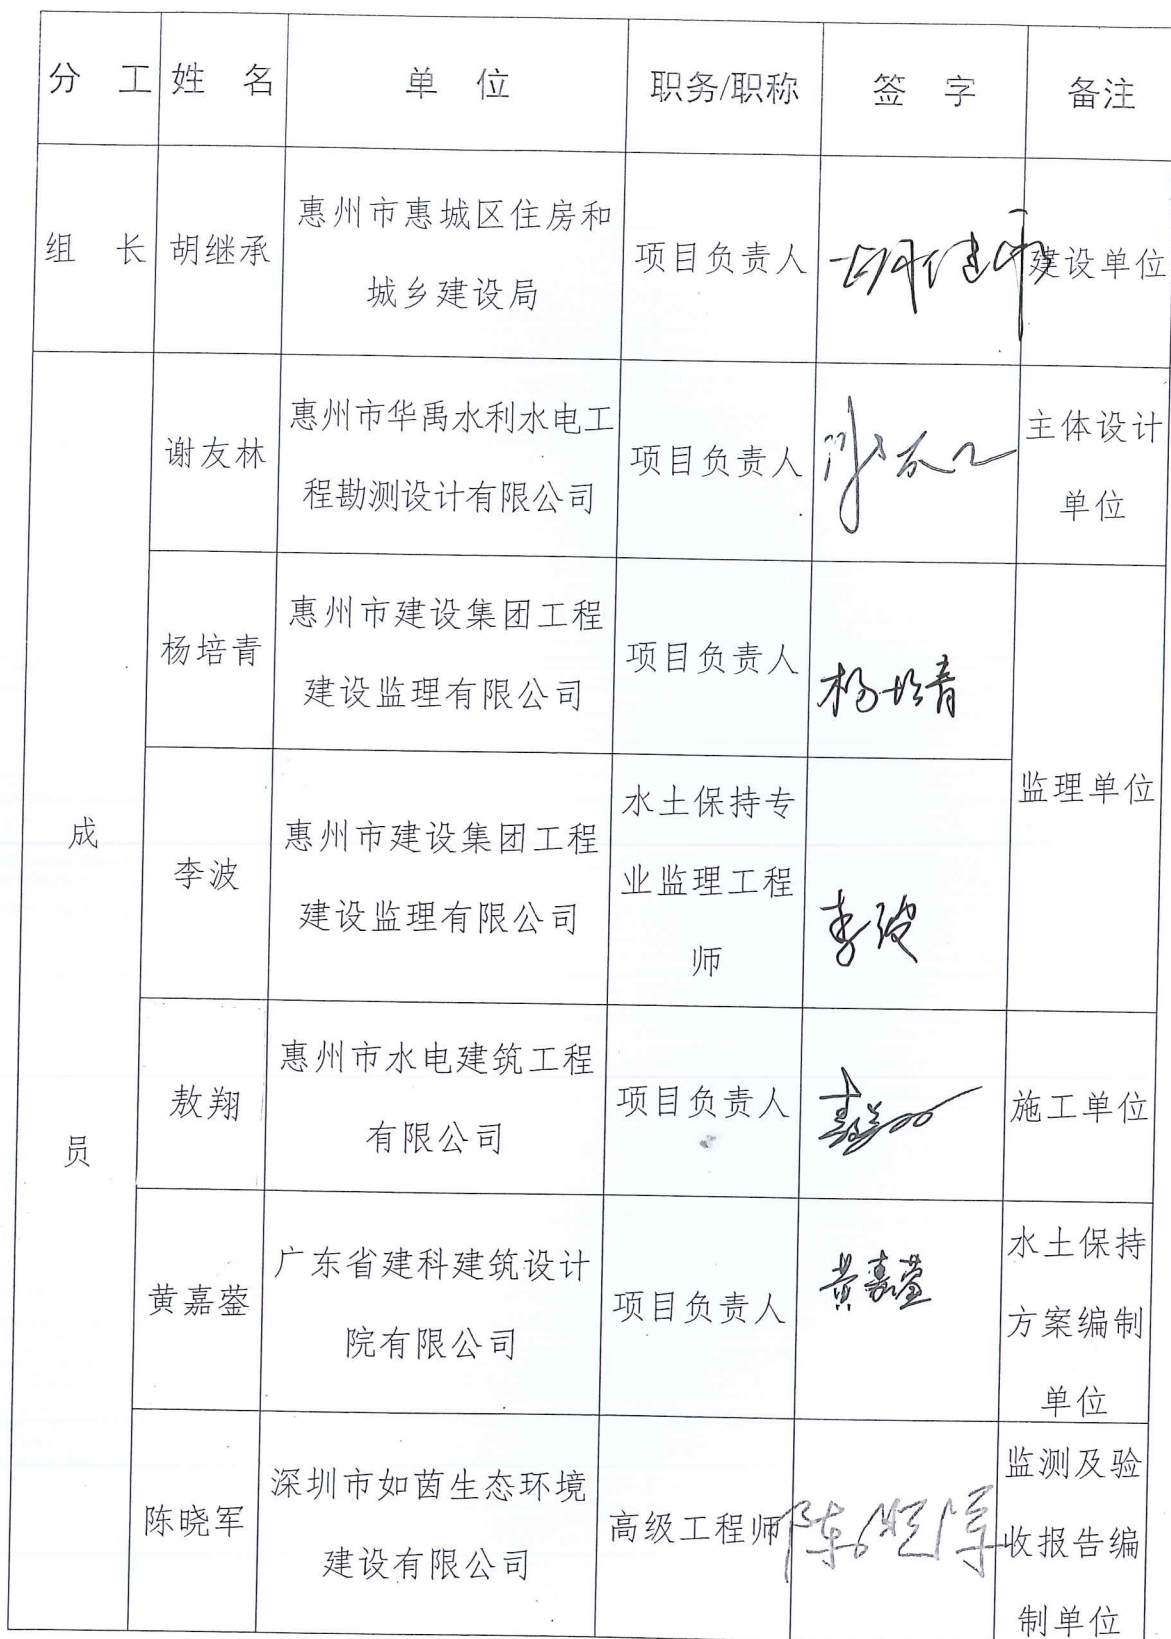 分 工 姓 名 单 位 职务/职称 签 字 备注
组 长 胡继承 惠州市惠城区住房和
城乡建设局 项目负责人 胡继承 建设单位
成
员
谢友林 惠州市华禹水利水电工
程勘测设计有限公司 项目负责人 主体设计
单位
杨培青 惠州市建设集团工程
建设监理有限公司 项目负责人 杨培青
监理单位
李波 惠州市建设集团工程
建设监理有限公司 水土保持专
业监理工程
师 李波
敖翔 惠州市水电建筑工程
有限公司 项目负责人 施工单位
黄嘉蓥 广东省建科建筑设计
院有限公司 项目负责人 黄嘉蓥 水土保持
方案编制
单位
陈晓军 深圳市如茵生态环境
建设有限公司 高级工程师 陈晓军 监测及验
收报告编
制单位